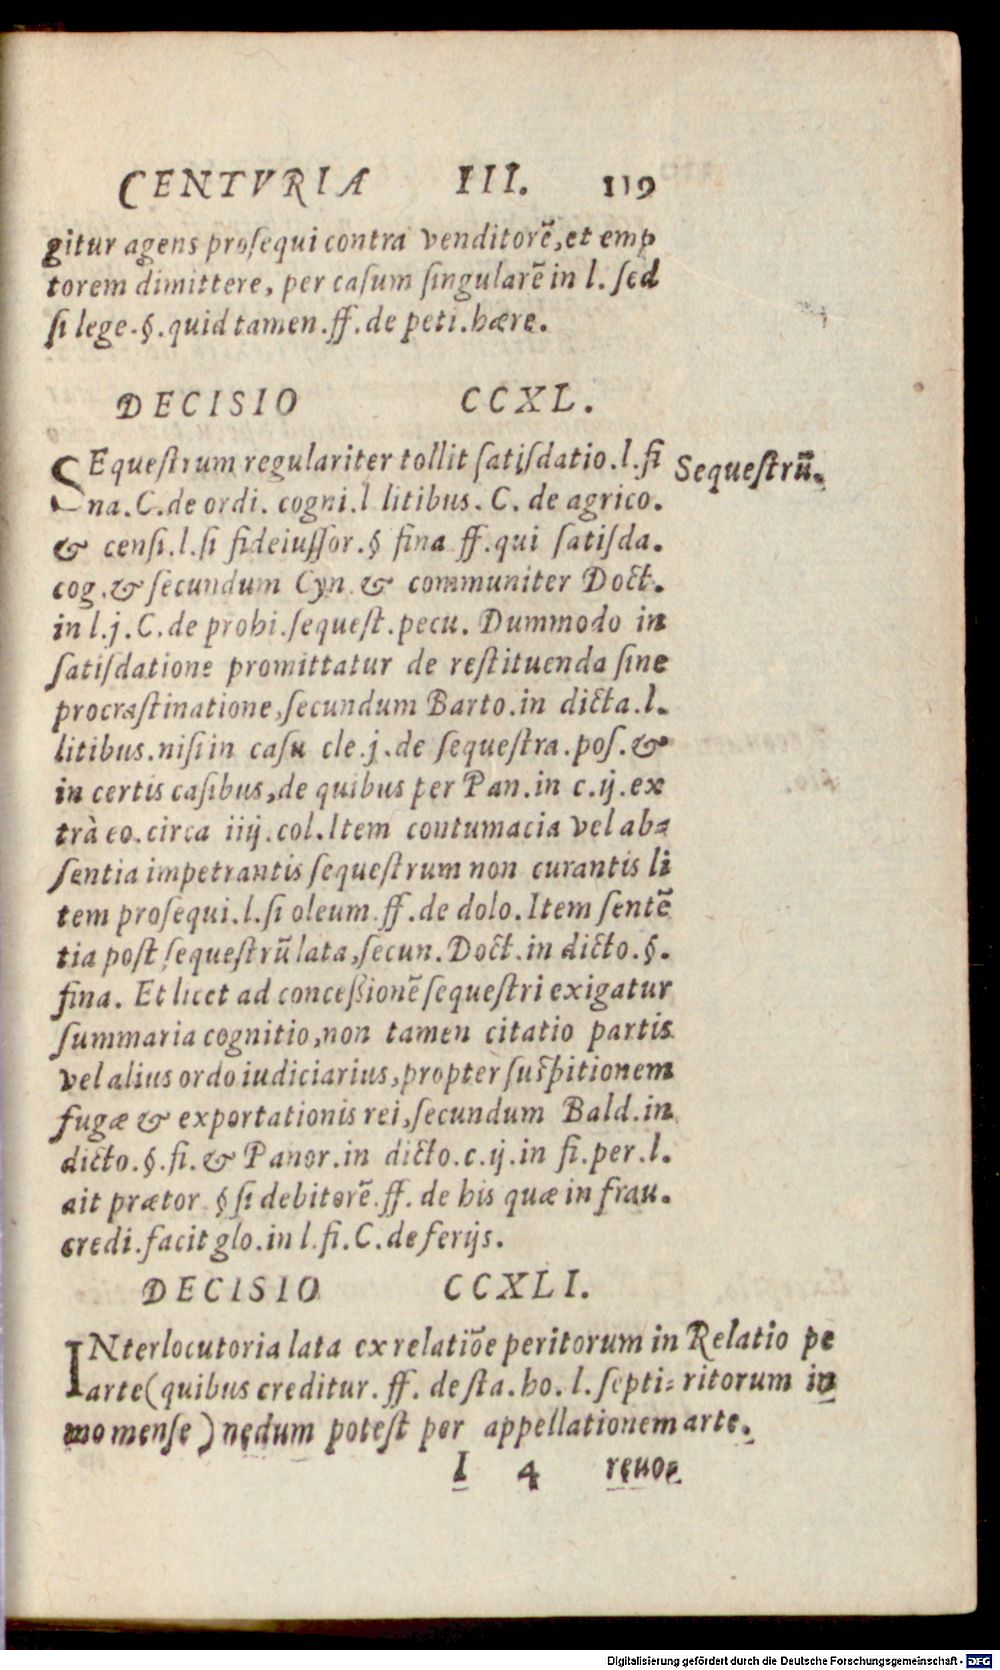 CENTVRIA III. 119
gitur agens proſequi contra venditorē, et emp
torem dimittere, per caſum ſingularē in l. ſed
ſi lege. §. quid tamen. ff. de peti. hære.
DECISIO CCXL.
SEqueſtrum regulariter tollit ſatiſdatio. l. fi
Sequeſtrū.
na. C. de ordi. cogni. l litibus. C. de agrico.
& cenſi. l. ſi fideiuſſor. § fina ff. qui ſatiſda.
cog. & ſecundum Cyn. & communiter Doct.
in l. j. C. de prohi. ſequeſt. pecu. Dummodo in
ſatiſdatione promittatur de reſtituenda ſine
procraſtinatione, ſecundum Barto. in dicta. l.
litibus. niſi in caſu cle. j. de ſequeſtra. poſ. &
in certis caſibus, de quibus per Pan. in c. ij. ex
trà eo. circa iiij. col. Item contumacia vel ab=
ſentia impetrantis ſequeſtrum non curantis li
tem proſequi. l. ſi oleum. ff. de dolo. Item ſentē
tia poſt ſequeſtrū lata, ſecun. Doct. in dicto. §.
fina. Et licet ad conceßionē ſequeſtri exigatur
ſummaria cognitio, non tamen citatio partis
vel alius ordo iudiciarius, propter ſuſpitionem
fugæ & exportationis rei, ſecundum Bald. in
dicto. §. fi. & Panor. in dicto. c. ij. in fi. per. l.
ait prætor § ſi debitorē. ff. de his quæ in frau.
credi. facit glo. in l. fi. C. de ferijs.
DECISIO CCXLI.
INterlocutoria lata ex relatiōe peritorum in
Relatio pe
arte (quibus creditur. ff. de ſta. ho. l. ſepti=
ritorum in
mo menſe) nedum poteſt per appellationem
arte.
I 4 reuo=
Digitalisierung gefördert durch die Deutsche Forschungsgemeinschaft - DFG